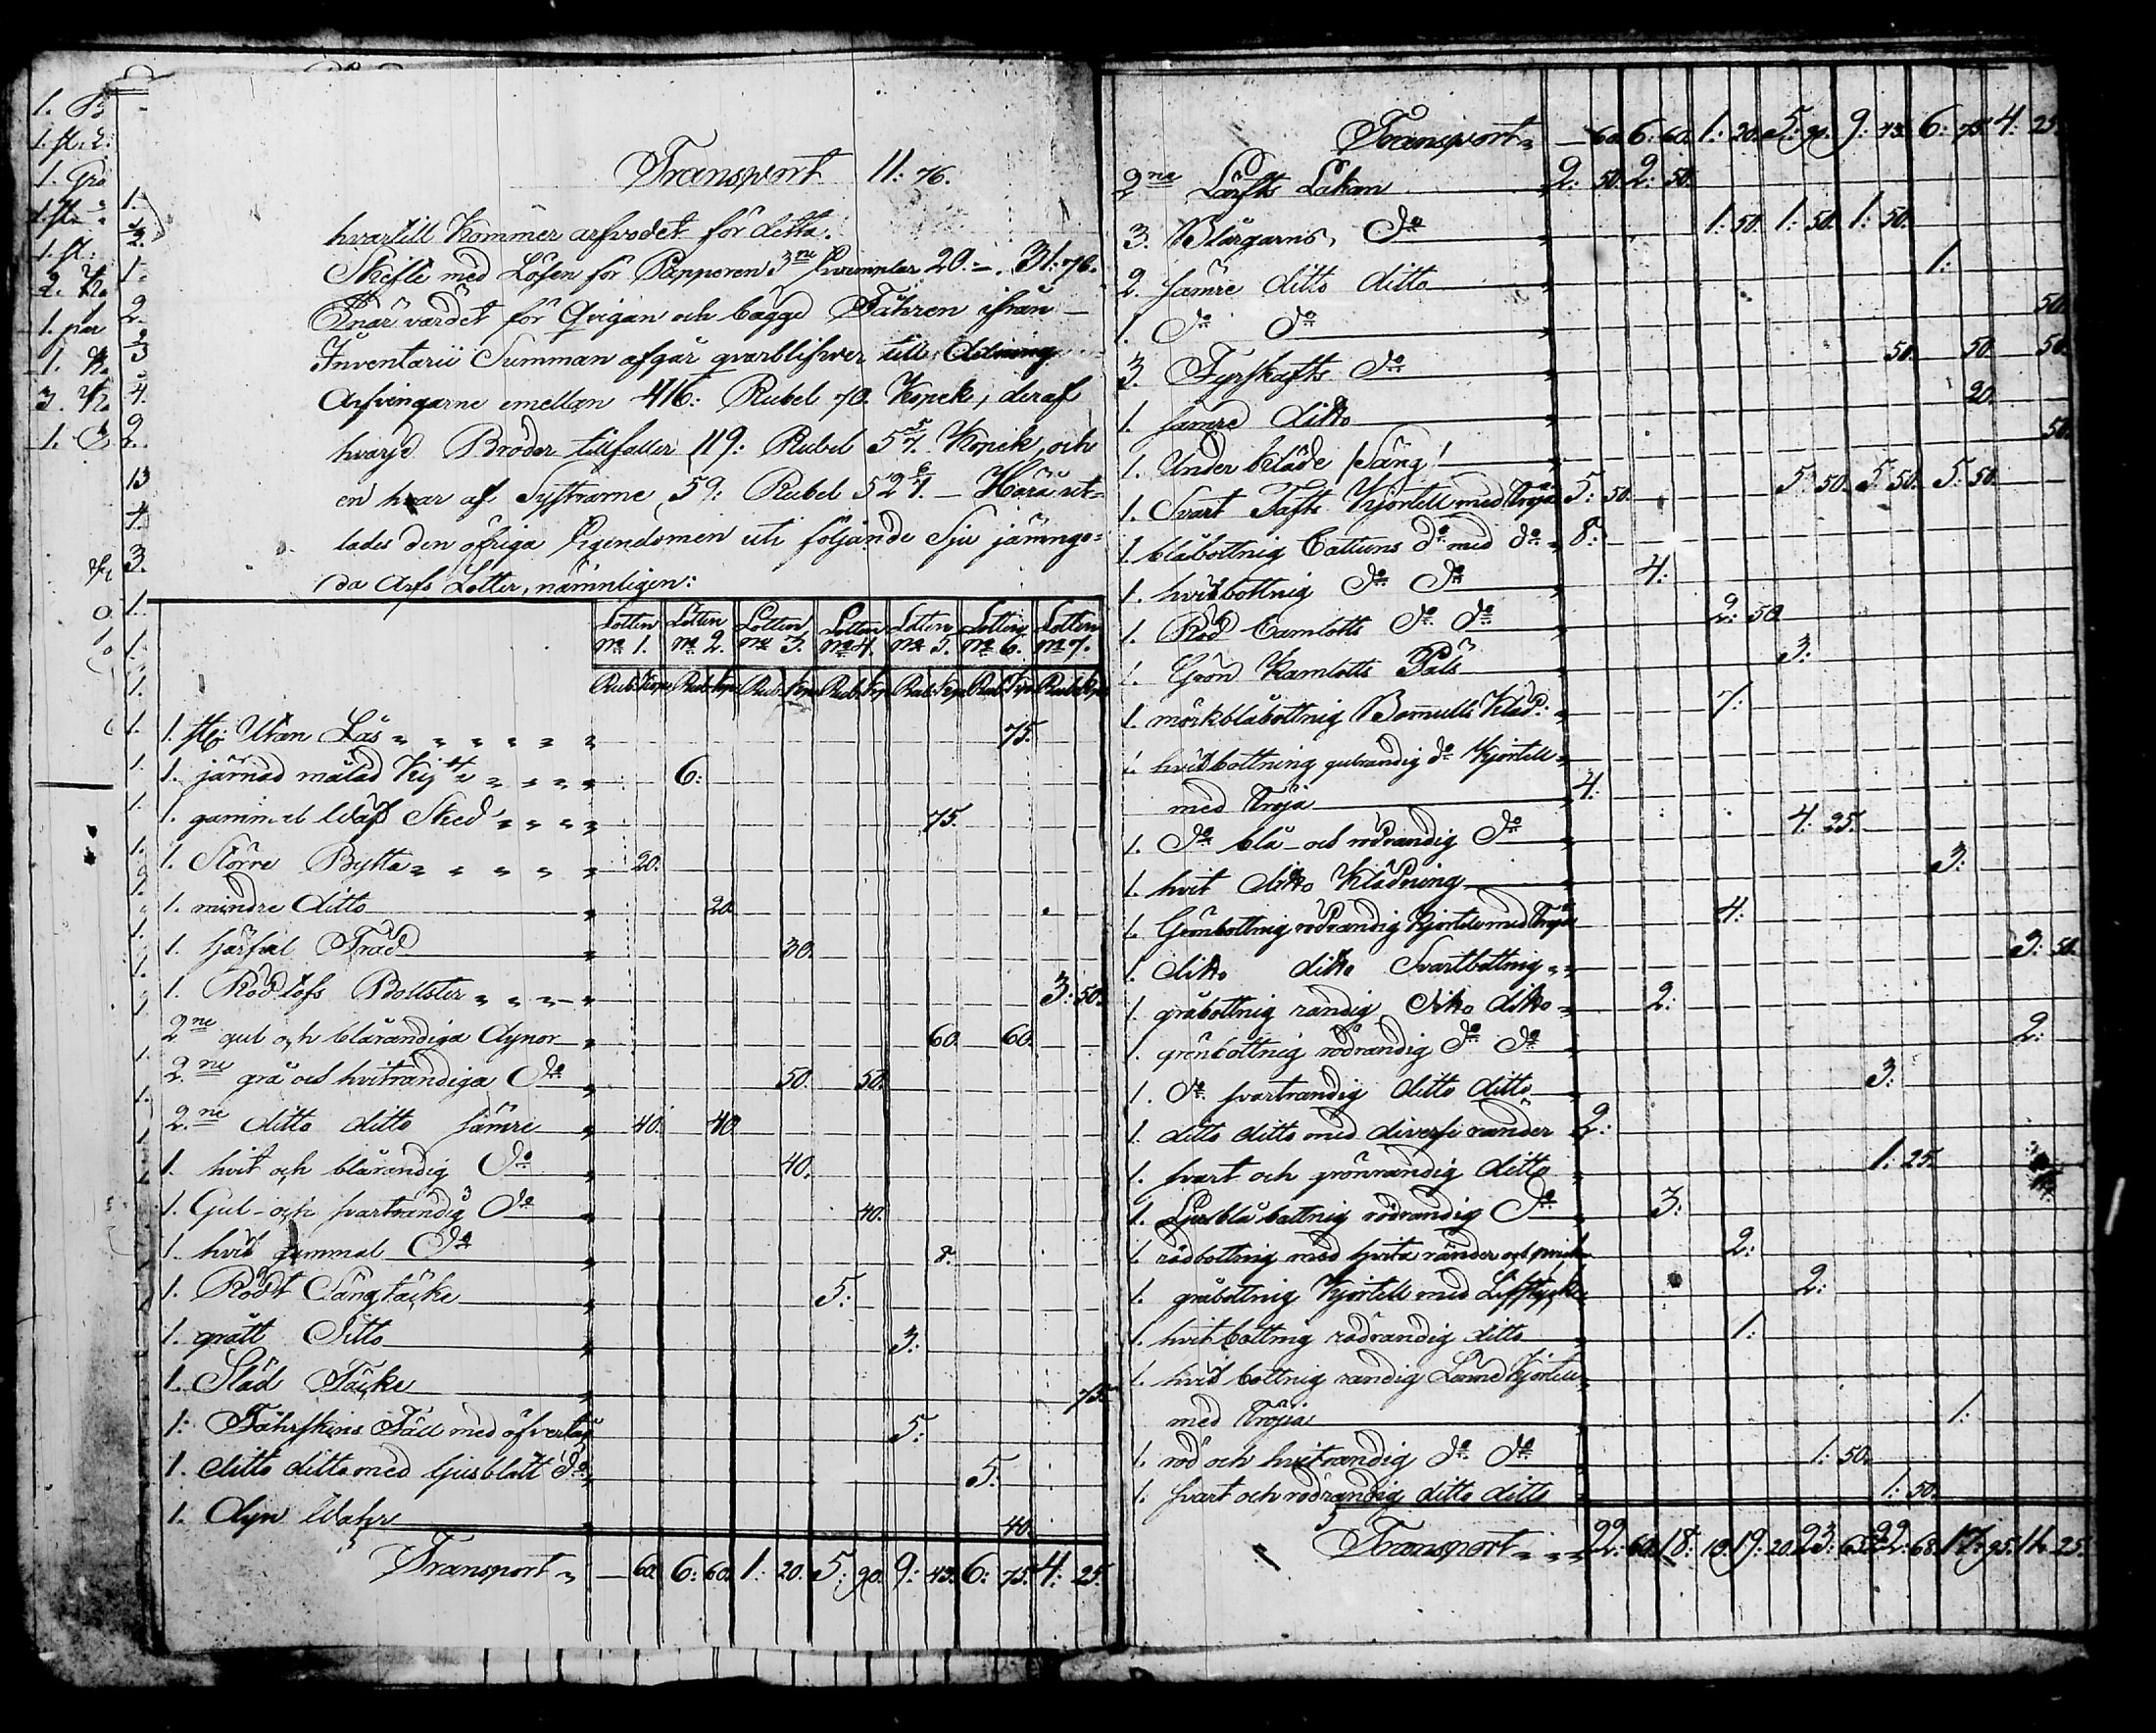 Transport 11: 76.
hvartill Kommer arfvodet för detta
Skifte med Lösen för Papperen 3ne Exemplar 20:–. 31: 76.
När värdet för Qvigan och bägge Fåhren ifrån
Inventarii Summan afgår qvarblifver till delning
Arfvingarne emellan 416: Rubel 70. Kopek, deraf
hvarje Broder tillfaller 119: Rubel 5 5/7. Kopek, och
en hvar af Systrarne 59: Rubel 52 6/7. – Härå ut-
lades den öfriga Egendomen uti följande Sju jämngo-
da Arfs Lotter, nämnligen:
Lotten No 1. Lotten No 2. Lotten No 3. Lotten No 4. Lotten No 5. Lotten No 6. Lotten No 7.
Rub. Kop. Rub. Kop. Rub. Kop. Rub. Kop. Rub. Kop. Rub. Kop. Rub. Kop.
1. st: Utan Lås 75.
1. järnad målad 6:
1. gammal Sked 75.
1. Större Bytta 20.
1. mindre ditto 20.
1. Träd 30.
1. Röd Bollster 3: 50.
2ne gul och blårandiga dynor 60. 60.
2ne grå och hvitrandiga do 50. 50.
2ne ditto ditto sämre 40. 40.
1. hvit och blårandig do 40.
1. Gul- och svartrandig do 40.
1. hvit gammal do 8.
1. Rödt Sängtäcke 5:
1. grått Ditto 3:
1. Släd Täcke 75.
1. Fåhrskins Fäll med öfvertåg 5:
1. ditto ditto med ljusblått do 5:
1. Dyn 40.
Transport – 60. 6: 60. 1: 20. 5: 90. 9: 43. 6: 75. 4: 25.
Transport – 60. 6: 60. 1: 20. 5: 90. 9: 43. 6: 75. 4: 25.
2ne Lärfts Lakan 2: 50. 2: 50.
3. Blårgarns do 1: 50. 1: 50. 1: 50.
2. sämre ditto ditto 1:
1. do do 50.
3. Fyrskafts do 50. 50. 50.
1. sämre ditto 20.
1. Under kläde /Säng/ 50.
1. Svart Tafts Kjortell med Tröja 5: 50. 5: 50. 5: 50. 5: 50.
1. blåbottnig Cattuns do med do 8:
1. hvitbottnig do do 4:
1. Röd Camlotts do do 2: 50.
1. Grön Kamlotts Päls 3:
1. mörkblåbottnig Bomulls Kläd: 7:
1. hvitbottning gulrandig do Kjortell
med Tröja 4:
1. do blå- och rödrandig do 4: 25.
1. hvit ditto Klädning 3:
1. Grönbottnig rödrandig Kjortel med Tröja 4:
1. ditto ditto Svartbottnig 3: 50.
1. gråbottnig randig ditto ditto 2:
1. grönbottnig rödrandig do do 2:
1. do svartrandig ditto ditto 3:
1. ditto ditto med diverse ränder 2:
1. svart och grönrandig ditto 1: 25.
1. Ljusblå bottnig rödrandig do 3:
1. rödbottnig med hvita ränder och 2:
1. gråbottnig Kjortell med Lifstycke 2:
1. hvit bottnig rödrandig ditto 1:
1. hvit bottnig randig Linne Kjortell
med Tröja 1:
1. röd och hvitrandig do do 1: 50.
1. svart och rödrandig ditto ditto 1: 50.
Transport 22: 60. 18: 10. 19: 20. 23: 65. 22: 68. 17: 95. 11: 25.